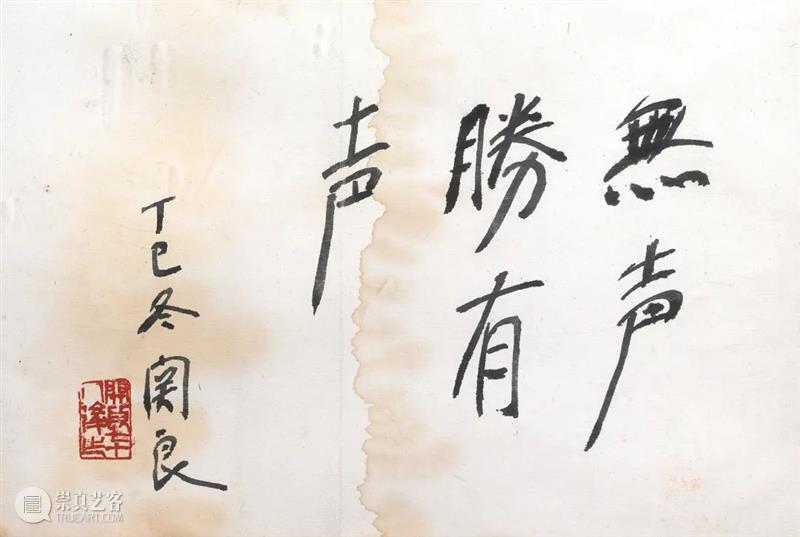 無声
勝有
声
丁巳冬関良
崇真艺客
TRUEART.COM